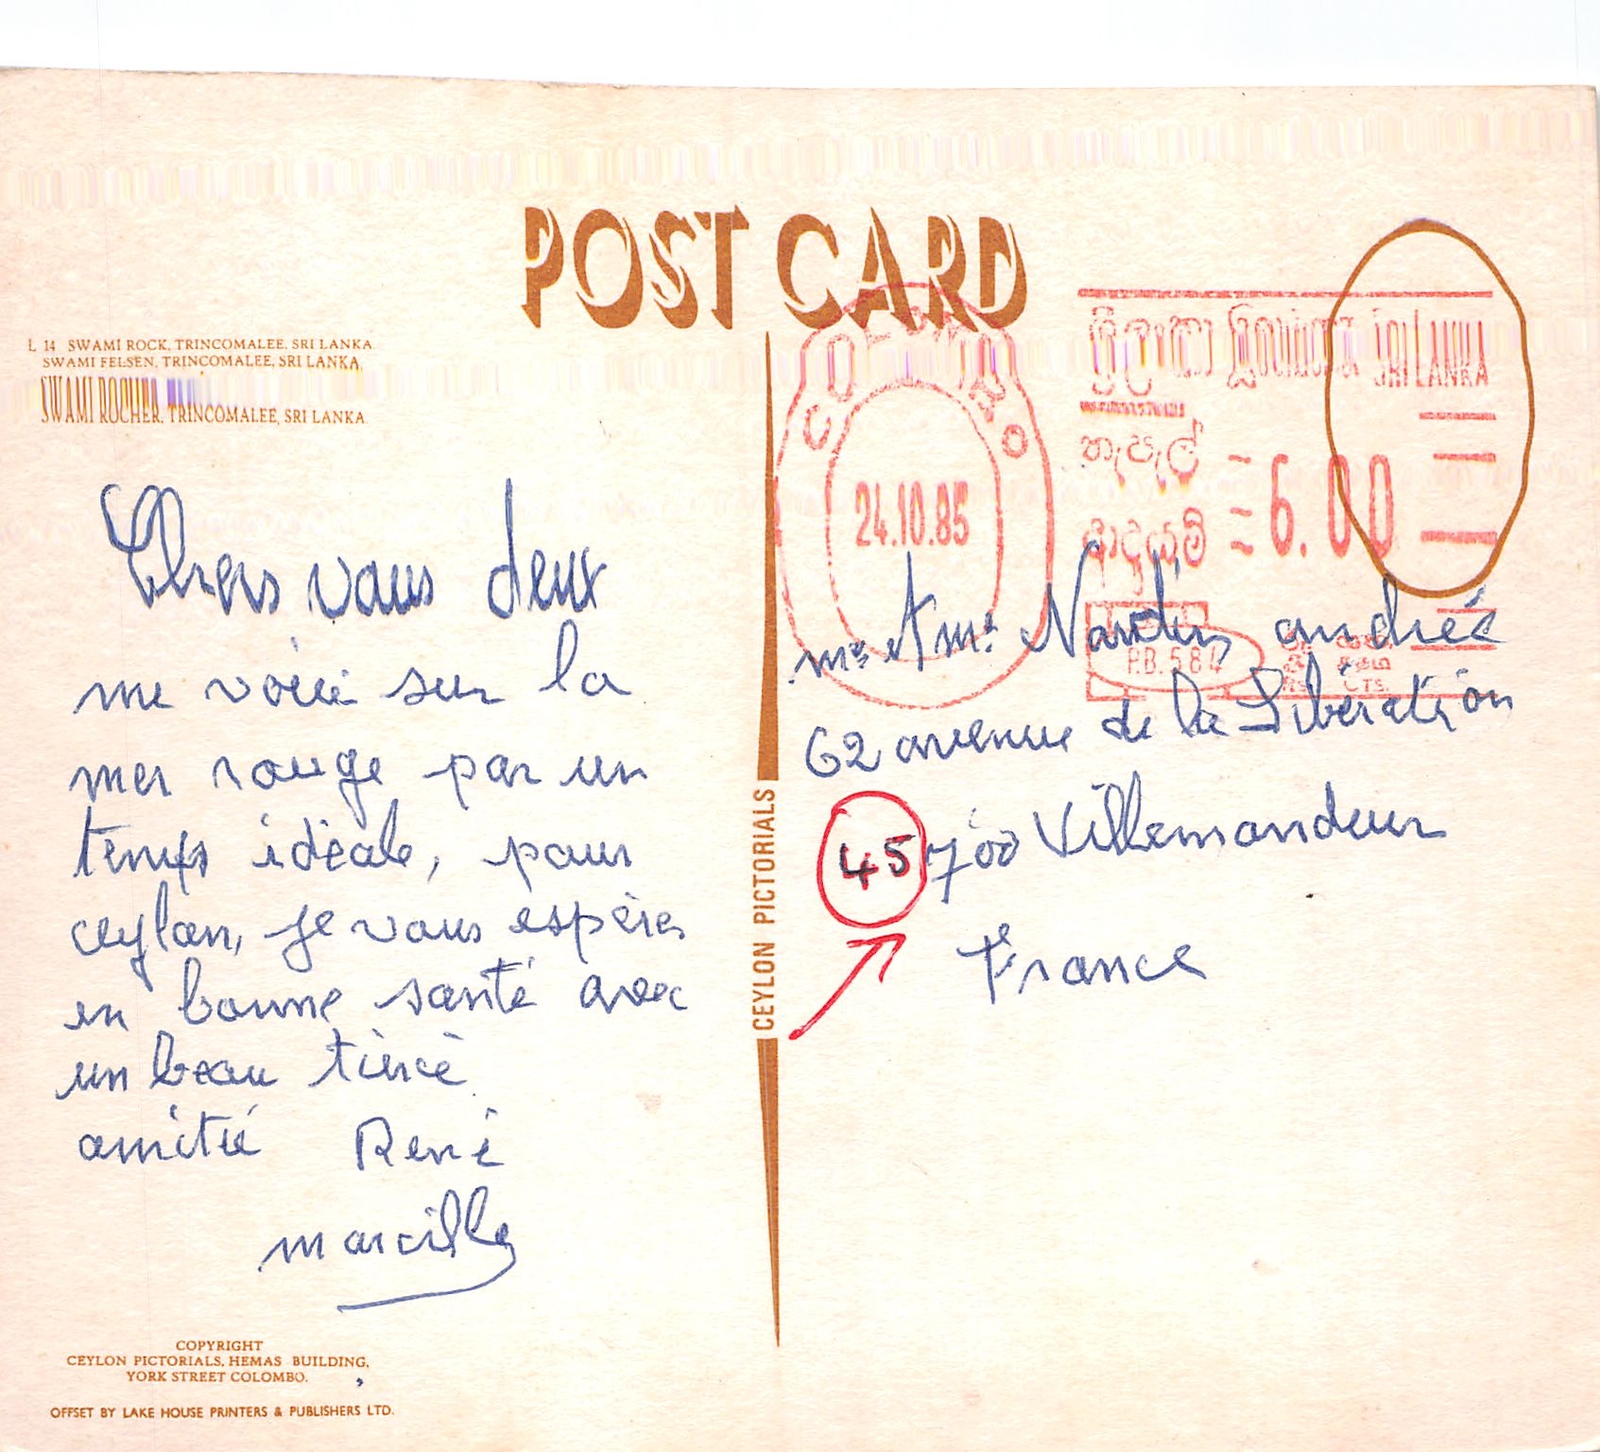 POST CARD
L 14 SWAMI ROCK, TRINCOMALEE, SRI LANKA
SWAMI FELSEN, TRINCOMALEE, SRI LANKA,
SWAMI ROCHER, TRINCOMALEE, SRI LANKA
Chers vous deux
me voici sur la
mer rouge par un
temps idéale, pour
ceylan, je vous espères
en bonne santé avec
un beau tiercé
amitié René
marcille
COPYRIGHT
CEYLON PICTORIALS, HEMAS BUILDING,
YORK STREET COLOMBO.
OFFSET BY LAKE HOUSE PRINTERS & PUBLISHERS LTD.
CEYLON PICTORIALS
COLOMBO
24.10.85
ශ්‍රී ලංකා இலங்கை SRI LANKA
තැපැල්
=6.00
P.B.584
CTS.
mr & me Nardin andrée
62 avenue de la Libération
45700 Villemandeur
France